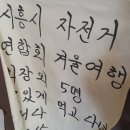 시흥시 자전거
연합회 겨울여행
회장외 5명
맛있게 먹고 다녀